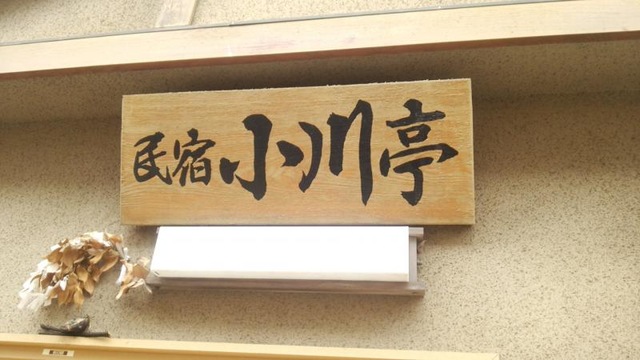 民宿小川亭